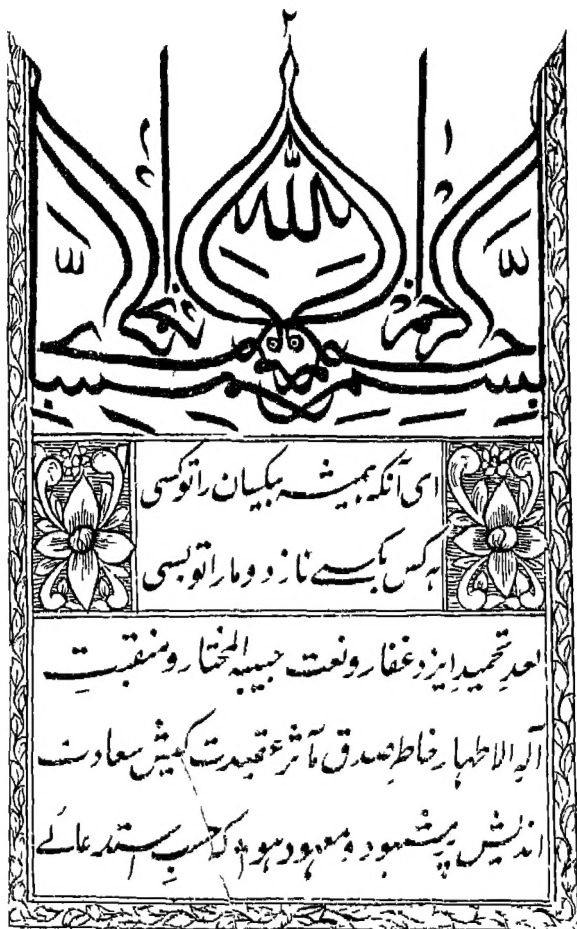 ۲
بسم اللہ الرحمن الرحیم
ای آنکہ ہمیشہ بیکسان را تو کسی
ہر کس بکسے نازد و ما را تو بسی
بعدِ تحمیدِ ایزد غفار و نعت حبیبہ المختار و منقبتِ
آلہ الاطہار خاطرِ صدق مآثر عقیدت کیش سعادت
اندیش پر مشہود و معہود ہو کہ حسبِ استدعائے